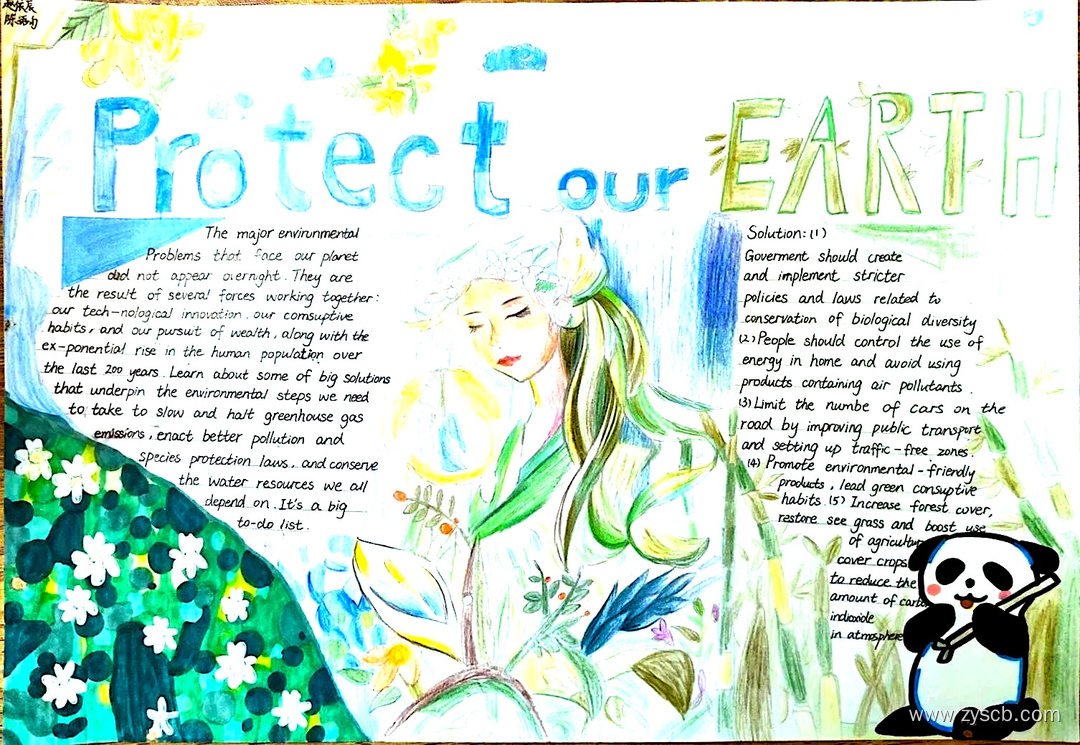 Protect our EARTH
The major envirunmental
Problems that face our planet
did not appear overnight. They are
the result of several forces working together:
our tech-nological innovation. our comsuptive
habits, and our pursuit of wealth, along with the
ex-ponential rise in the human population over
the last 200 years. Learn about some of big solutions
that underpin the environmental steps we need
to take to slow and halt greenhouse gas
emissions, enact better pollution and
species protection laws, and conserve
the water resources we all
depend on. It's a big
to-do list.
Solution: (1)
Goverment should create
and implement stricter
policies and laws related to
conservation of biological diversity
(2) People should control the use of
energy in home and avoid using
products containing air pollutants.
(3) Limit the numbe of cars on the
road by improving public transport
and setting up traffic-free zones.
(4) Promote environmental-friendly
products, lead green consuptive
habits. (5) Increase forest cover,
restore see grass and boost use
of agricultur
cover crops
to reduce the
amount of carbo
indioxide
in atmosphere
www.zyscb.com